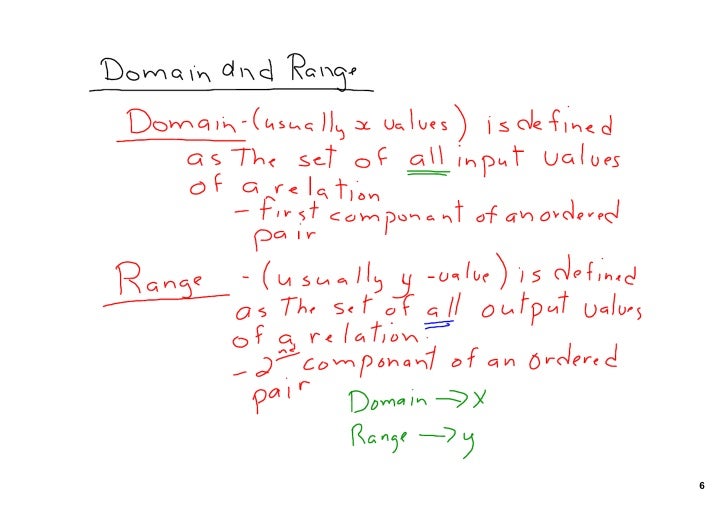 Domain and Range
Domain - (usually x values) is defined
as The set of all input values
of a relation
- first componant of an ordered
pair
Range - (usually y-value) is defined
as The set of all output values
of a relation.
- 2nd component of an ordered
pair
Domain → x
Range → y
6